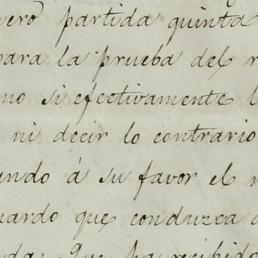 vero partida quinta
para la prueba del
no si efectivamente
ni decir lo contrario
endo á su favor el
uardo que conduzca
que ha recibido